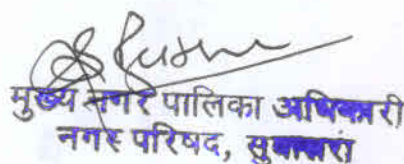 मुख्य नगर पालिका अधिकारी
नगर परिषद,